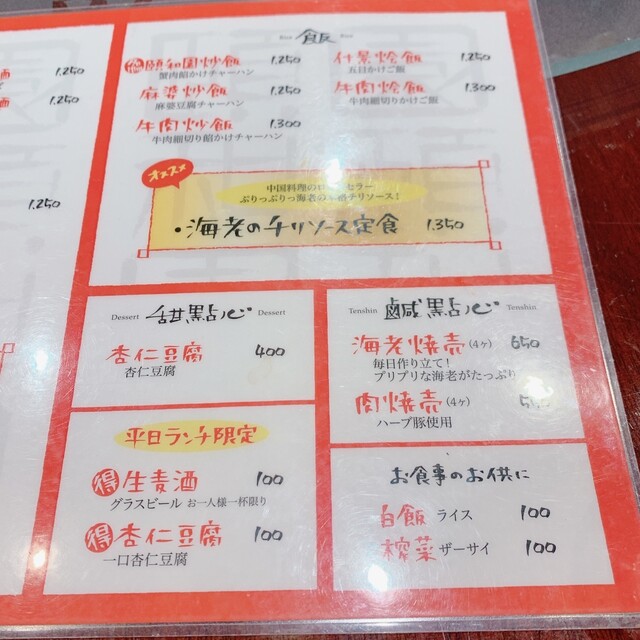 酒
1.250
酒
1.250
1.250
Rice 飯 Rice
頤和園炒飯 1.250
蟹肉餡かけチャーハン
麻婆炒飯 1.250
麻婆豆腐チャーハン
牛肉炒飯 1.300
牛肉細切り餡かけチャーハン
什景燴飯 1.250
五目かけご飯
牛肉燴飯 1.300
牛肉細切りかけご飯
オススメ
中国料理の セラー
ぷりっぷりっ海老の 格チリソース!
・海老のチリソース定食 1.350
Dessert 甜點心 Dessert
杏仁豆腐 400
杏仁豆腐
平日ランチ限定
得 生麦酒 100
グラスビール お一人様一杯限り
得 杏仁豆腐 100
一口杏仁豆腐
Tenshin 鹹點心 Tenshin
海老焼売(4ヶ) 650
毎日作り立て!
プリプリな海老がたっぷり
肉焼売(4ヶ)
ハーブ豚使用
お食事のお供に
白飯 ライス 100
榨菜 ザーサイ 100